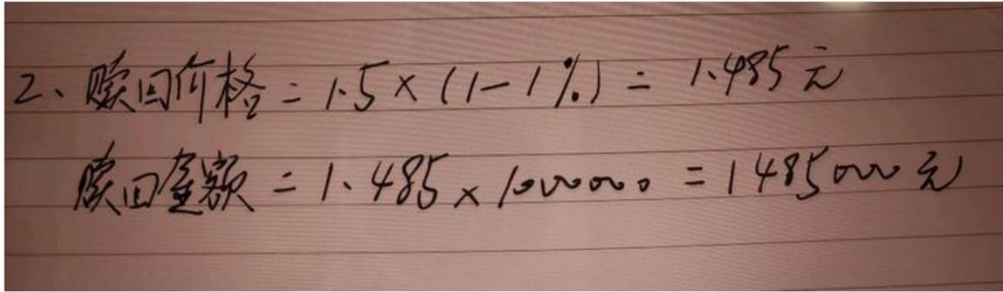 2、赎回价格=1.5×(1-1%)=1.485元
赎回金额=1.485×1000000=1485000元